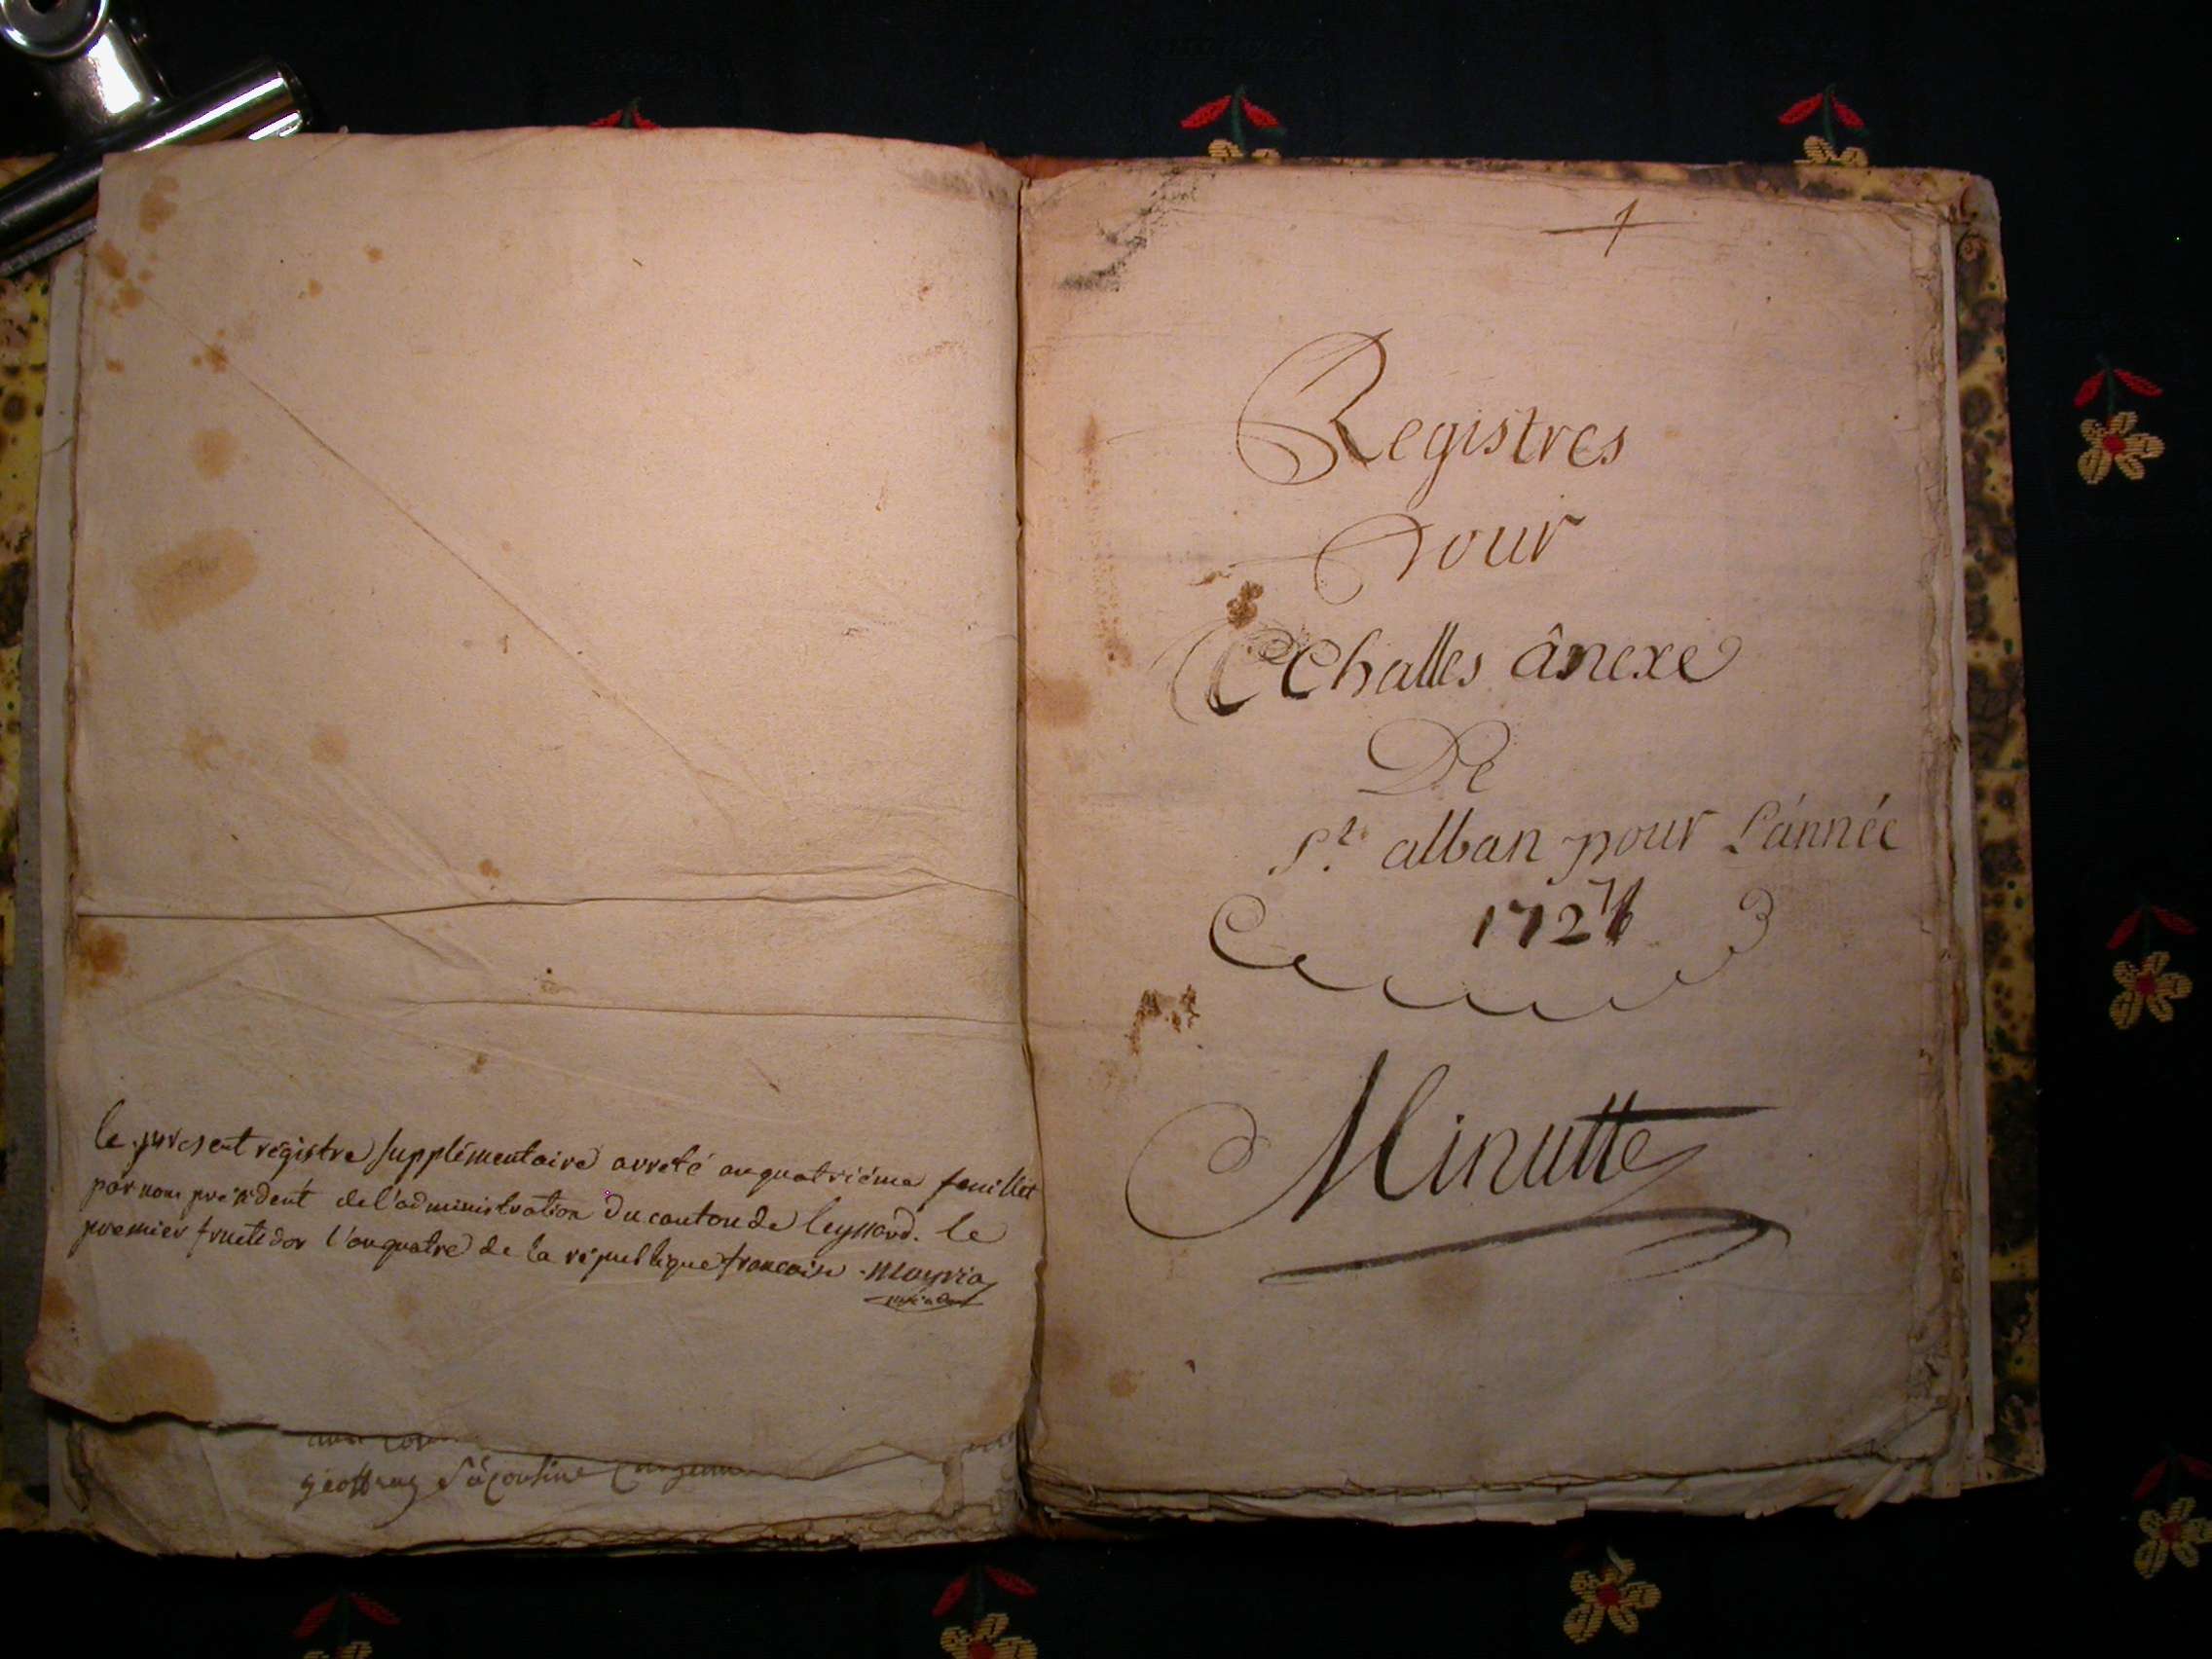 le present régistre supplémentaire arreté au quatriéme feuillet
par nous président de l'administration du canton de leyssard. le
premier fructidor l'an quatre de la république francaise. Mayria
président
geoffray
Registres
Pour
Challes ânexe
De
St. alban pour L'ánnée
172
Minutte